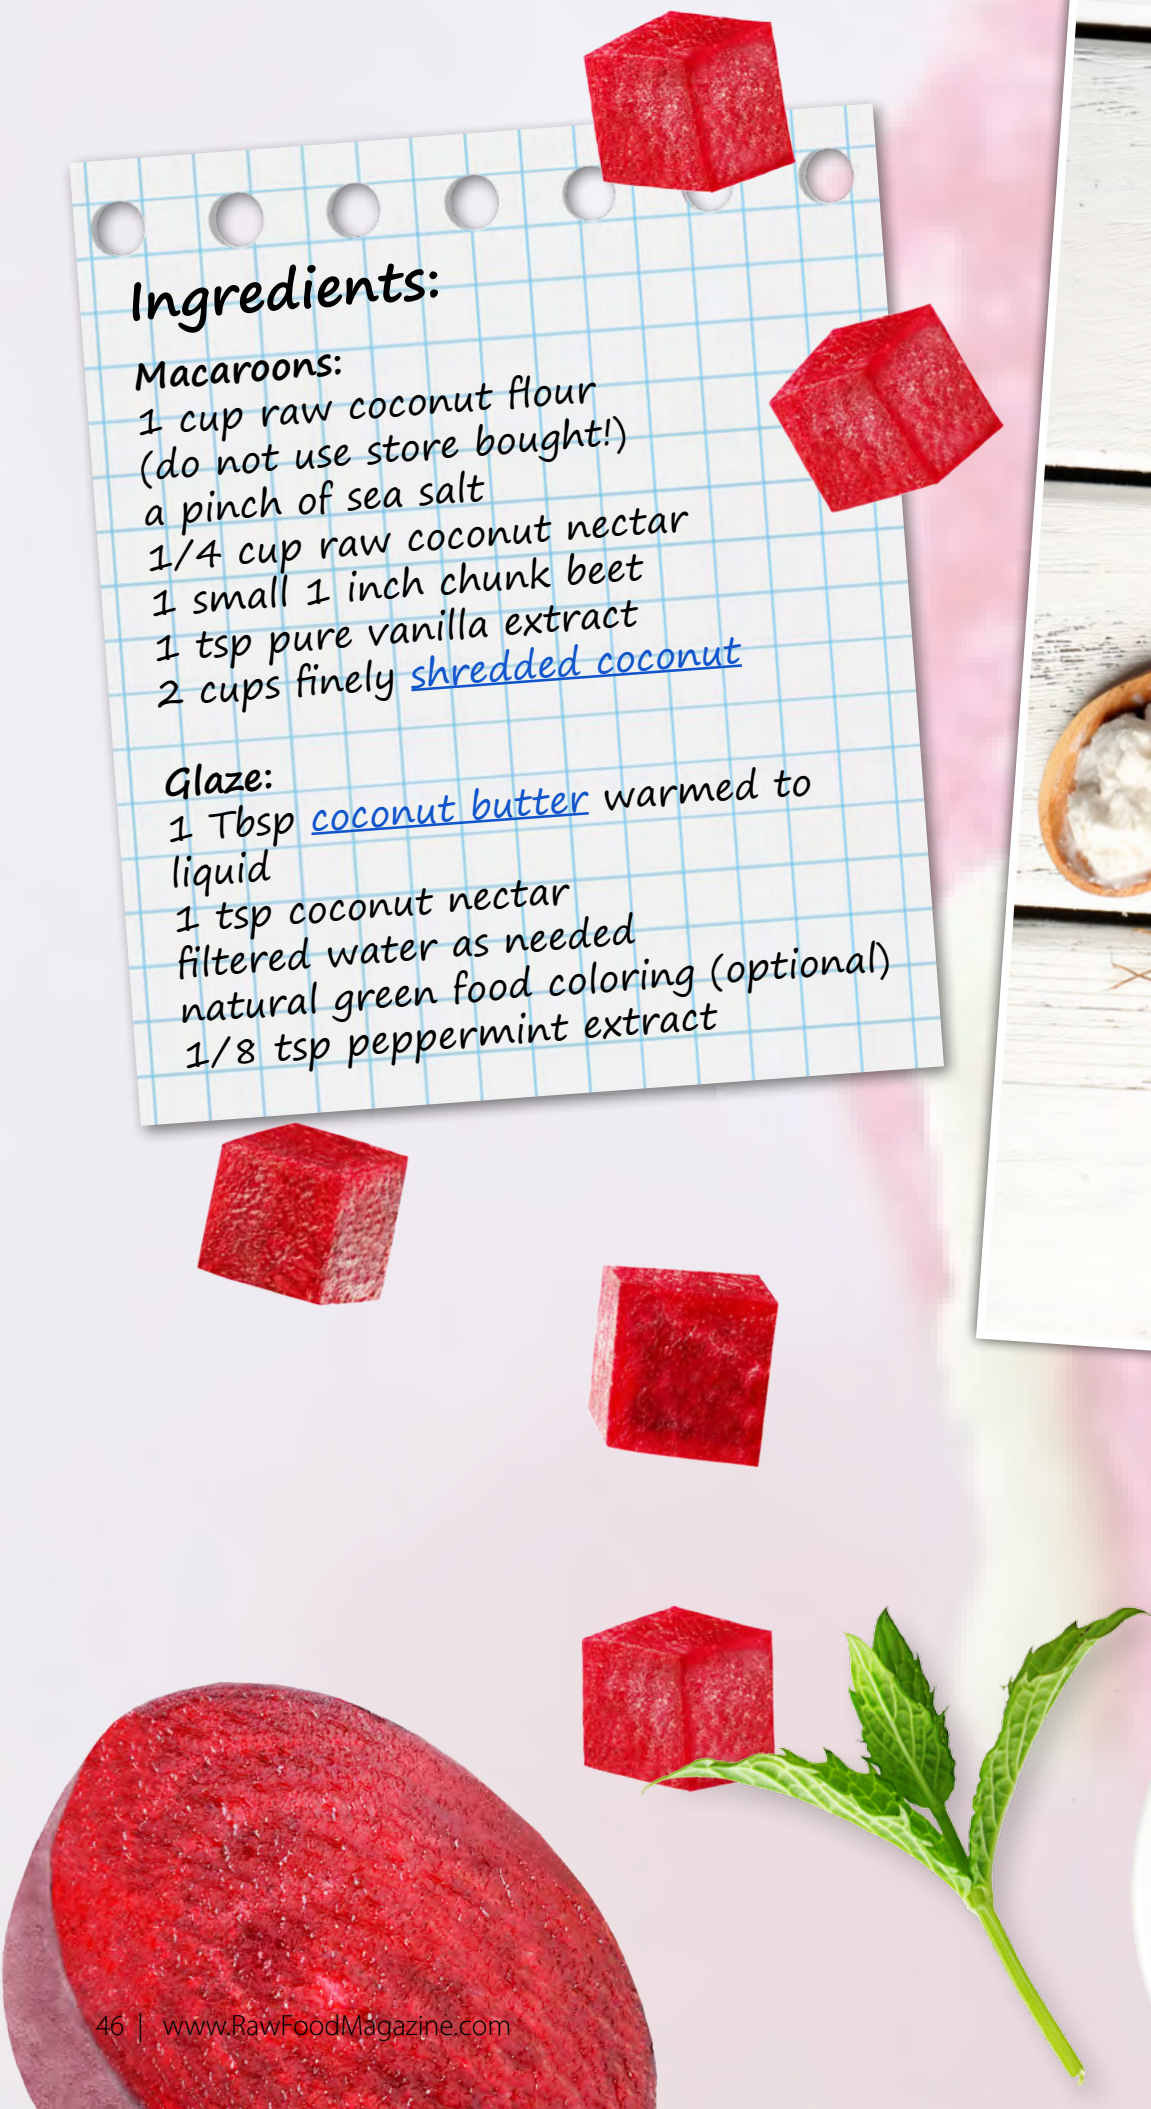 Ingredients:
Macaroons:
1 cup raw coconut flour
(do not use store bought!)
a pinch of sea salt
1/4 cup raw coconut nectar
1 small 1 inch chunk beet
1 tsp pure vanilla extract
2 cups finely shredded coconut
Glaze:
1 Tbsp coconut butter warmed to
liquid
1 tsp coconut nectar
filtered water as needed
natural green food coloring (optional)
1/8 tsp peppermint extract
46 | www.RawFoodMagazine.com